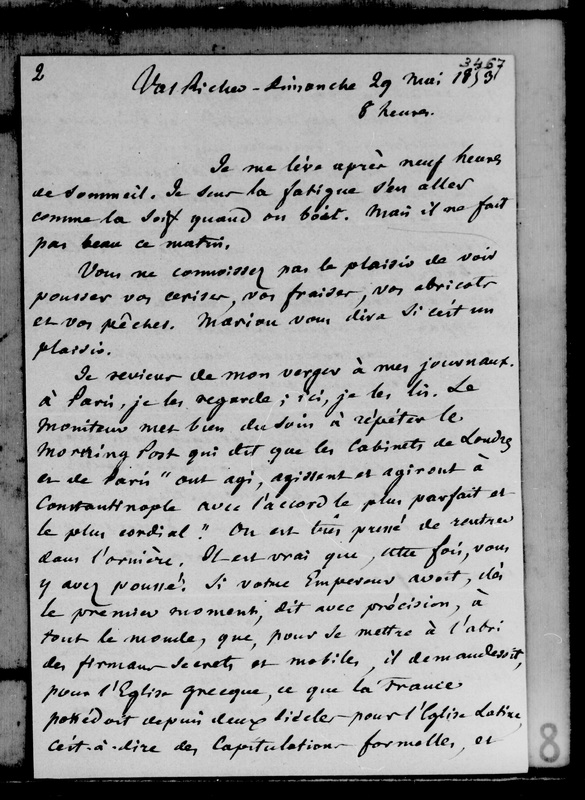 2
3467
Val Richer - Dimanche 29 Mai 1853
8 heures.
Je me lève après neuf heures
de sommeil. Je sens la fatigue s'en aller
comme la soif quand on boit. Mais il ne fait
pas beau ce matin.
Vous ne connoissez pas le plaisir de voir
pousser vos cerises, vos fraises, vos abricots
et vos pêches. Marion vous dira si c'est un
plaisir.
Je reviens de mon verger à mes journaux.
à Paris, je les regarde ; ici, je les lis. Le
Moniteur met bien du soin à répéter le
Morning Post qui dit que les Cabinets de Londres
et de Paris "ont agi, agissent et agiront à
Constantinople avec l'accord le plus parfait et
le plus cordial." On est très pressé de rentrer
dans l'ornière. Il est vrai que, cette fois, vous
y avez poussé. Si votre Empereur avoit, dès
le premier moment, dit avec précision, à
tout le monde, que, pour se mettre à l'abri
des firmans secrets et mobiles, il demandoit,
pour l'Eglise grecque, ce que la France
possédoit depuis deux siècles pour l'Eglise Latine,
c'est-à-dire des Capitulations formelles, et
8